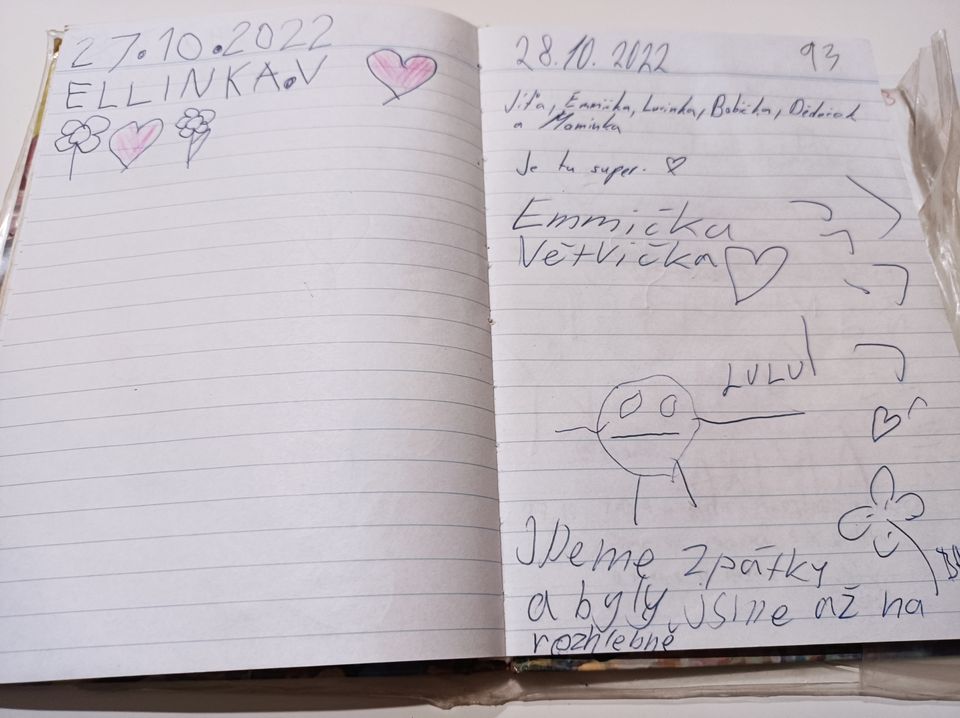 27.10.2022
ELLINKA.V
28.10.2022 93
Jíťa, Emmička, Lucinka, Babička, Dědeček
a Maminka
Je tu super.
Emmička
Větvička
LULU
JDeme zpátky
a byly jsme až na
rozhlebně